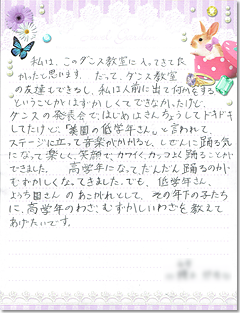 私は、このダンス教室に入ってきて良
かったと思います。だって、ダンス教室
の友達もできるし、私は人前に出て何かをする
ということがはずかしくてできなかったけど、
ダンスの発表会で、はじめはきんちょうしてドキドキ
してたけど、「楽園の低学年さん。」と言われて、
ステージに立って音楽がかかると、しぜんに踊る気
になって楽しく、笑顔で、カワイく、カッコよく踊ることが
できました。高学年になって、だんだん踊るのが
むずかしくなってきました。でも、低学年さん、
ようち園さんのあこがれとして、その年下の子たち
に、高学年のわざ、むずかしいわざを教えて
あげたいです。